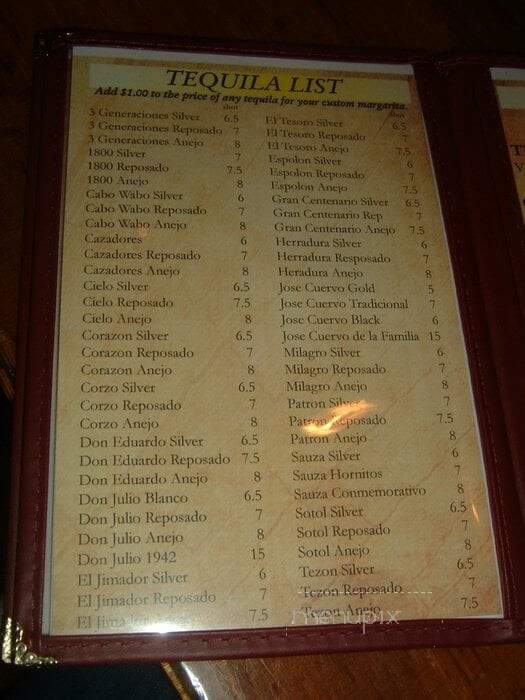 TEQUILA LIST
Add $1.00 to the price of any tequila for your custom margarita.
shot
3 Generaciones Silver 6.5
3 Generaciones Reposado 7
3 Generaciones Anejo 8
1800 Silver 7
1800 Reposado 7.5
1800 Anejo 8
Cabo Wabo Silver 6
Cabo Wabo Reposado 7
Cabo Wabo Anejo 8
Cazadores 6
Cazadores Reposado 7
Cazadores Anejo 8
Cielo Silver 6.5
Cielo Reposado 7.5
Cielo Anejo 8
Corazon Silver 6.5
Corazon Reposado 7
Corazon Anejo 8
Corzo Silver 6.5
Corzo Reposado 7
Corzo Anejo 8
Don Eduardo Silver 6.5
Don Eduardo Reposado 7.5
Don Eduardo Anejo 8
Don Julio Blanco 6.5
Don Julio Reposado 7
Don Julio Anejo 8
Don Julio 1942 15
El Jimador Silver 6
El Jimador Reposado 7
El Jimador Anejo 7.5
shot
El Tesoro Silver 6.5
El Tesoro Reposado 7
El Tesoro Anejo 7.5
Espolon Silver 6
Espolon Reposado 7
Espolon Anejo 7.5
Gran Centenario Silver 6.5
Gran Centenario Rep 7
Gran Centenario Anejo 7.5
Herradura Silver 6
Herradura Resposado 7
Heradura Anejo 8
Jose Cuervo Gold 5
Jose Cuervo Tradicional 7
Jose Cuervo Black 6
Jose Cuervo de la Familia 15
Milagro Silver 6
Milagro Reposado 7
Milagro Anejo 8
Patron Silver 7
Patron Reposado 7.5
Patron Anejo 8
Sauza Silver 6
Sauza Hornitos 7
Sauza Conmemorativo 8
Sotol Silver 6.5
Sotol Reposado 7
Sotol Anejo 8
Tezon Silver 6.5
Tezon Reposado 7
Tezon Anejo 7.5
menupix